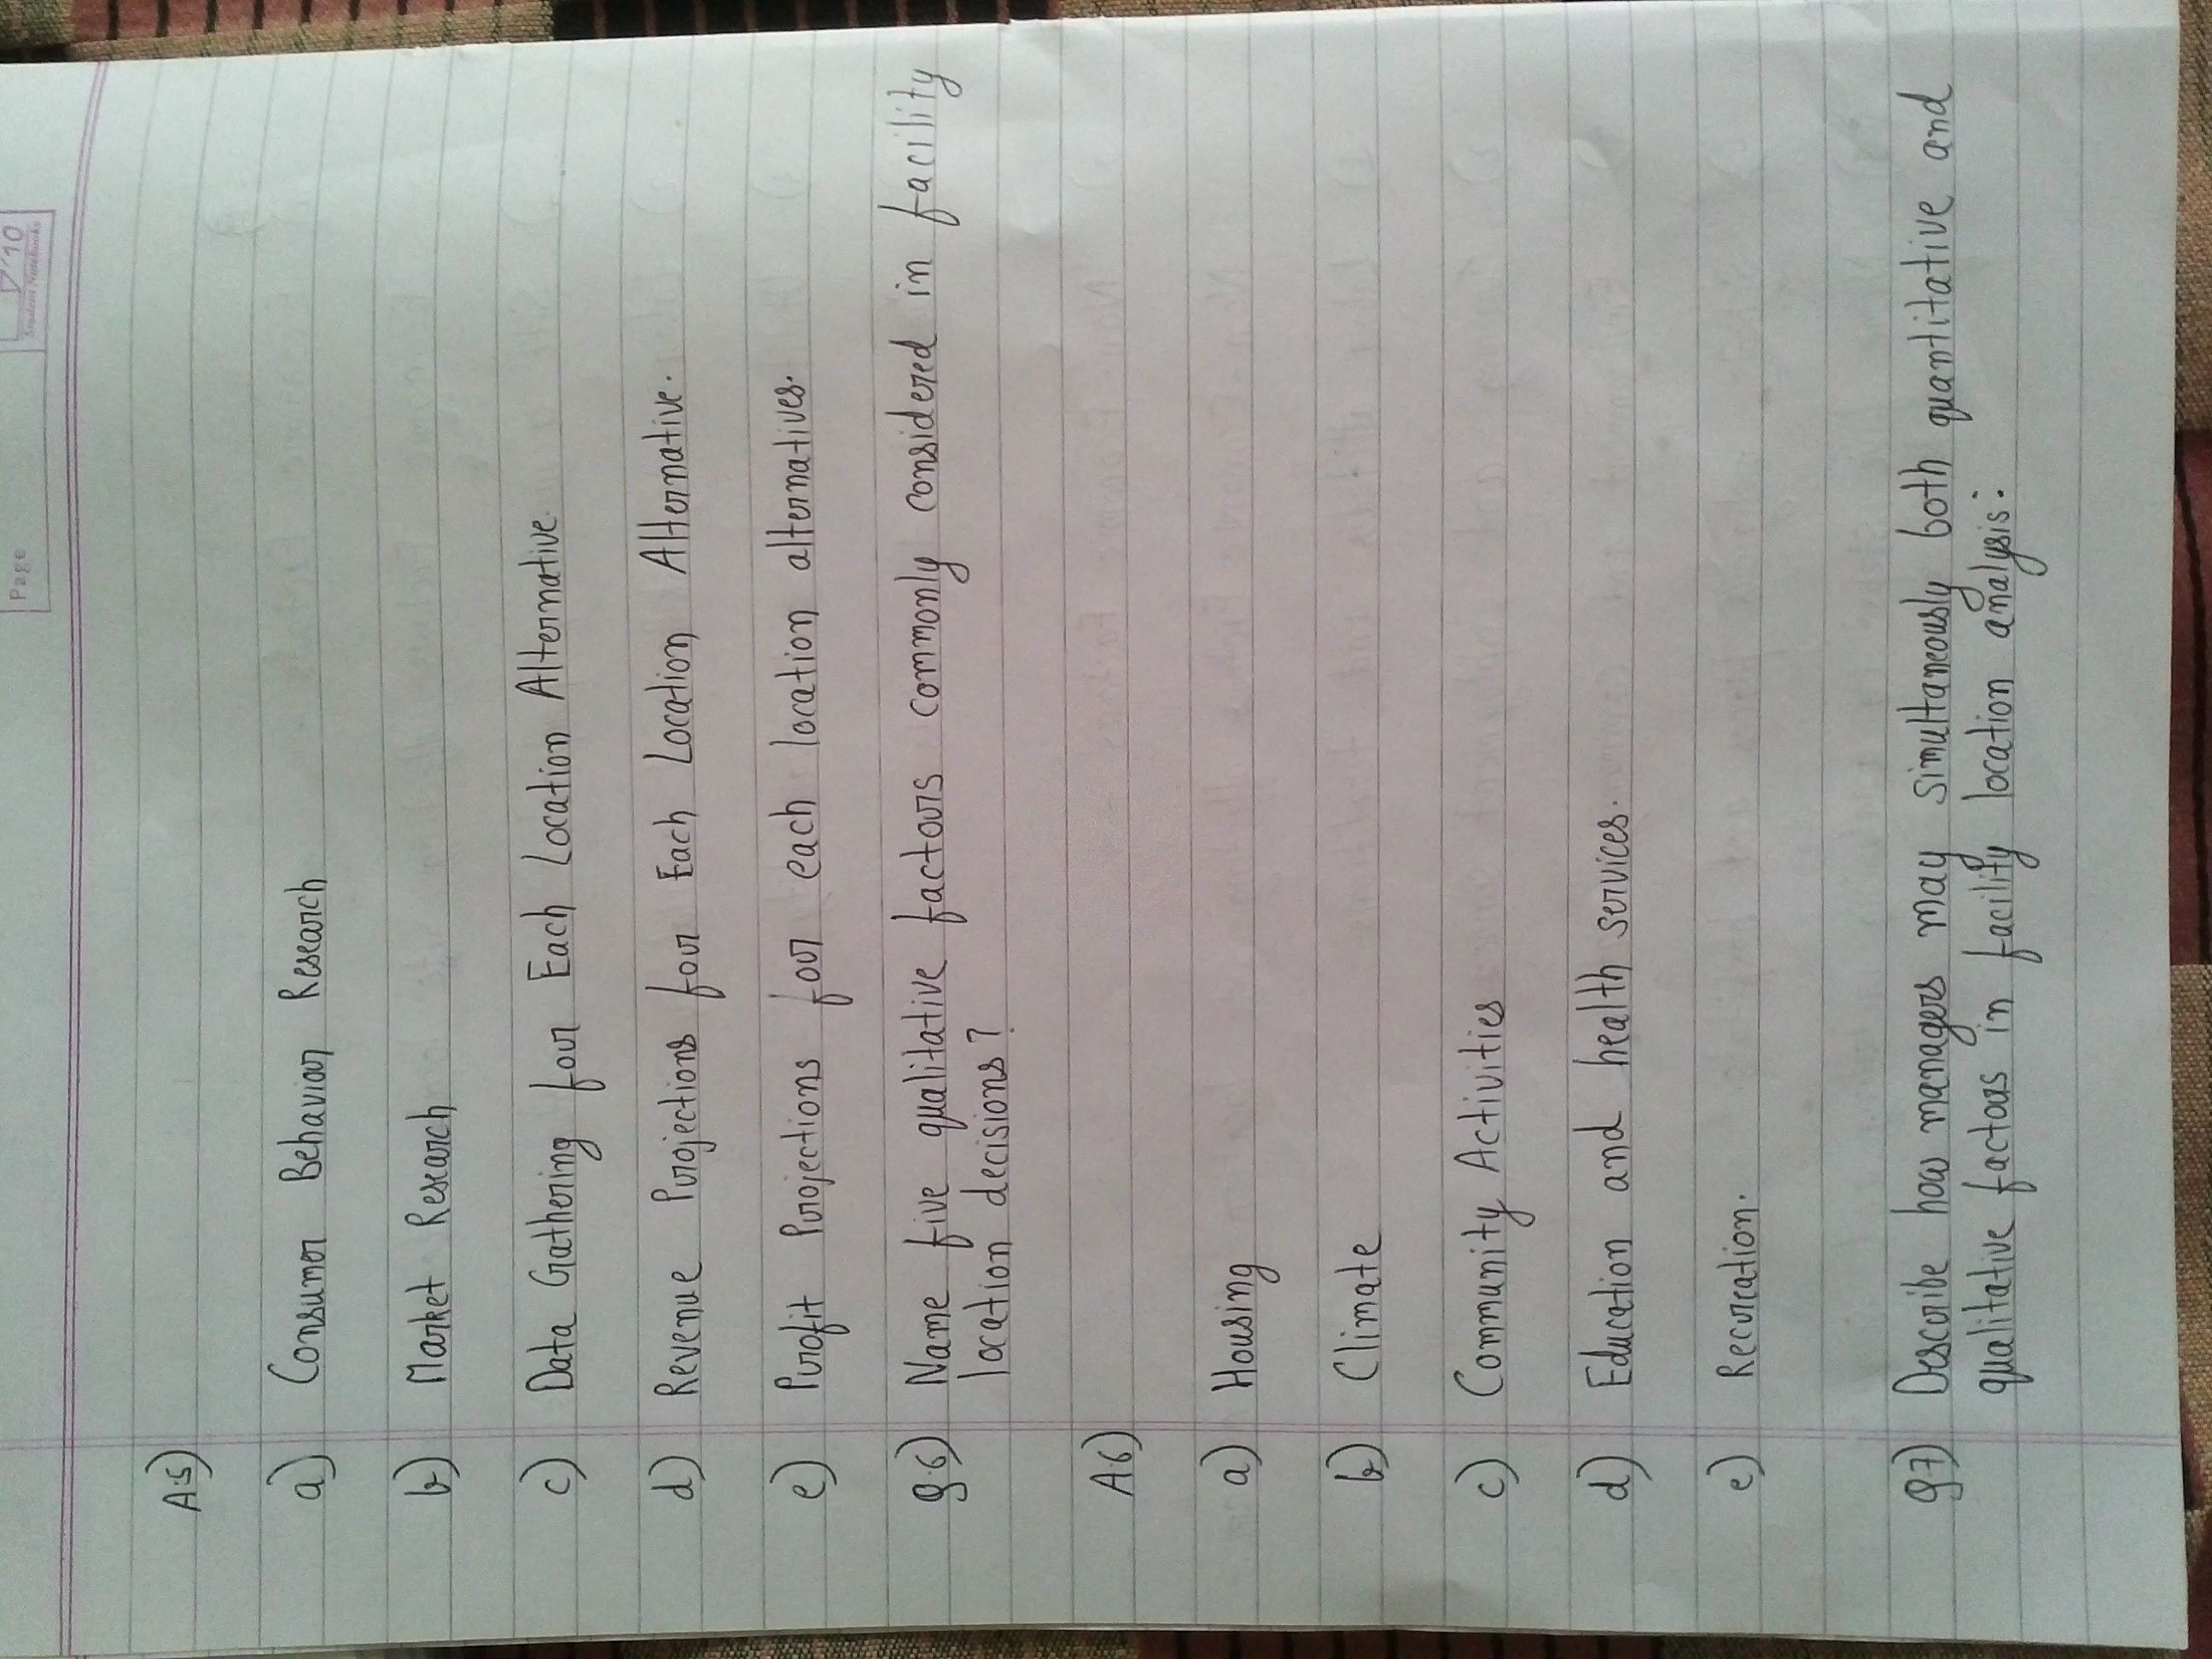 Page
Student Notebooks
A.5)
a) Consumer Behavior Research
b) Market Research
c) Data Gathering for Each Location Alternative.
d) Revenue Projections for Each Location Alternative.
e) Profit Projections for each location alternatives.
Q.6) Name five qualitative factors commonly considered in facility
location decisions?
A.6)
a) Housing
b) Climate
c) Community Activities
d) Education and health services.
e) Recreation.
Q7) Describe how managers may simultaneously both quantitative and
qualitative factors in facility location analysis: